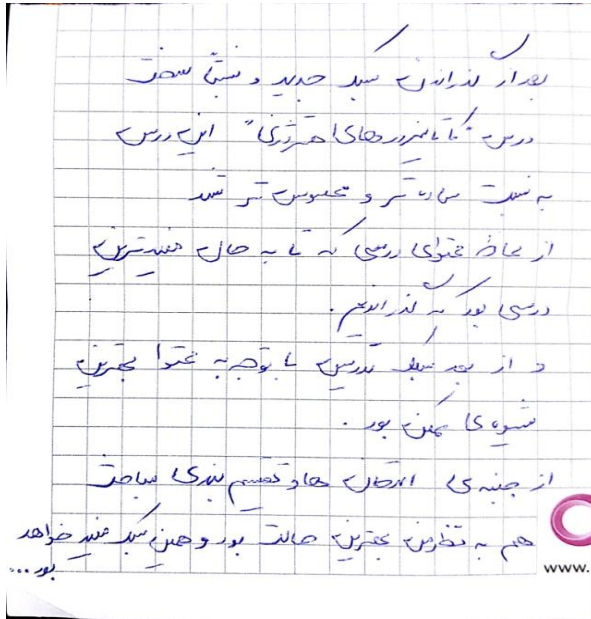 بعد از گذراندن سبک جدید و نسبتاً سخت
درس "کاتالیزورهای همروژنی" این درس
به نسبت ساده تر و محسوس تر شد
از لحاظ محتوای درسی که تا به حال مفیدترین
درسی بود که گذراندیم.
و از بعد سبک تدریس با توجه به محتوا بهترین
شیوه ی ممکن بود.
از جنبه ی امتحان ها و تقسیم بندی مباحث
هم به نظرم بهترین حالت بود و همین سبک مفید خواهد
بود...
www.